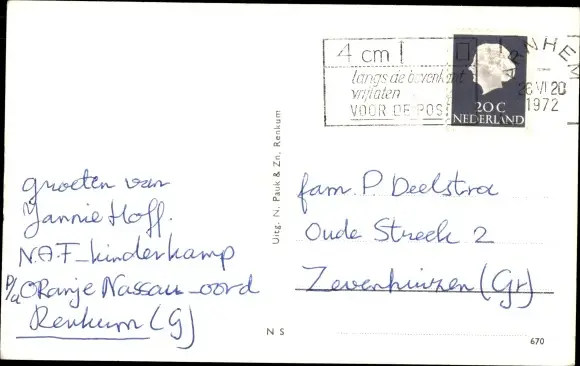 4 cm
langs de bovenkant
vrijlaten
VOOR DE POST
ARNHEM
28 VI 20
1972
20 C
NEDERLAND
groeten van
Jannie Hoff.
N.A.F-kinderkamp
p/a Oranje Nassau-oord
Renkum (G)
Uitg. N. Pauk & Zn. Renkum
fam. P. Deelstra
Oude Streek 2
Zevenhuizen (Gr)
N S
670